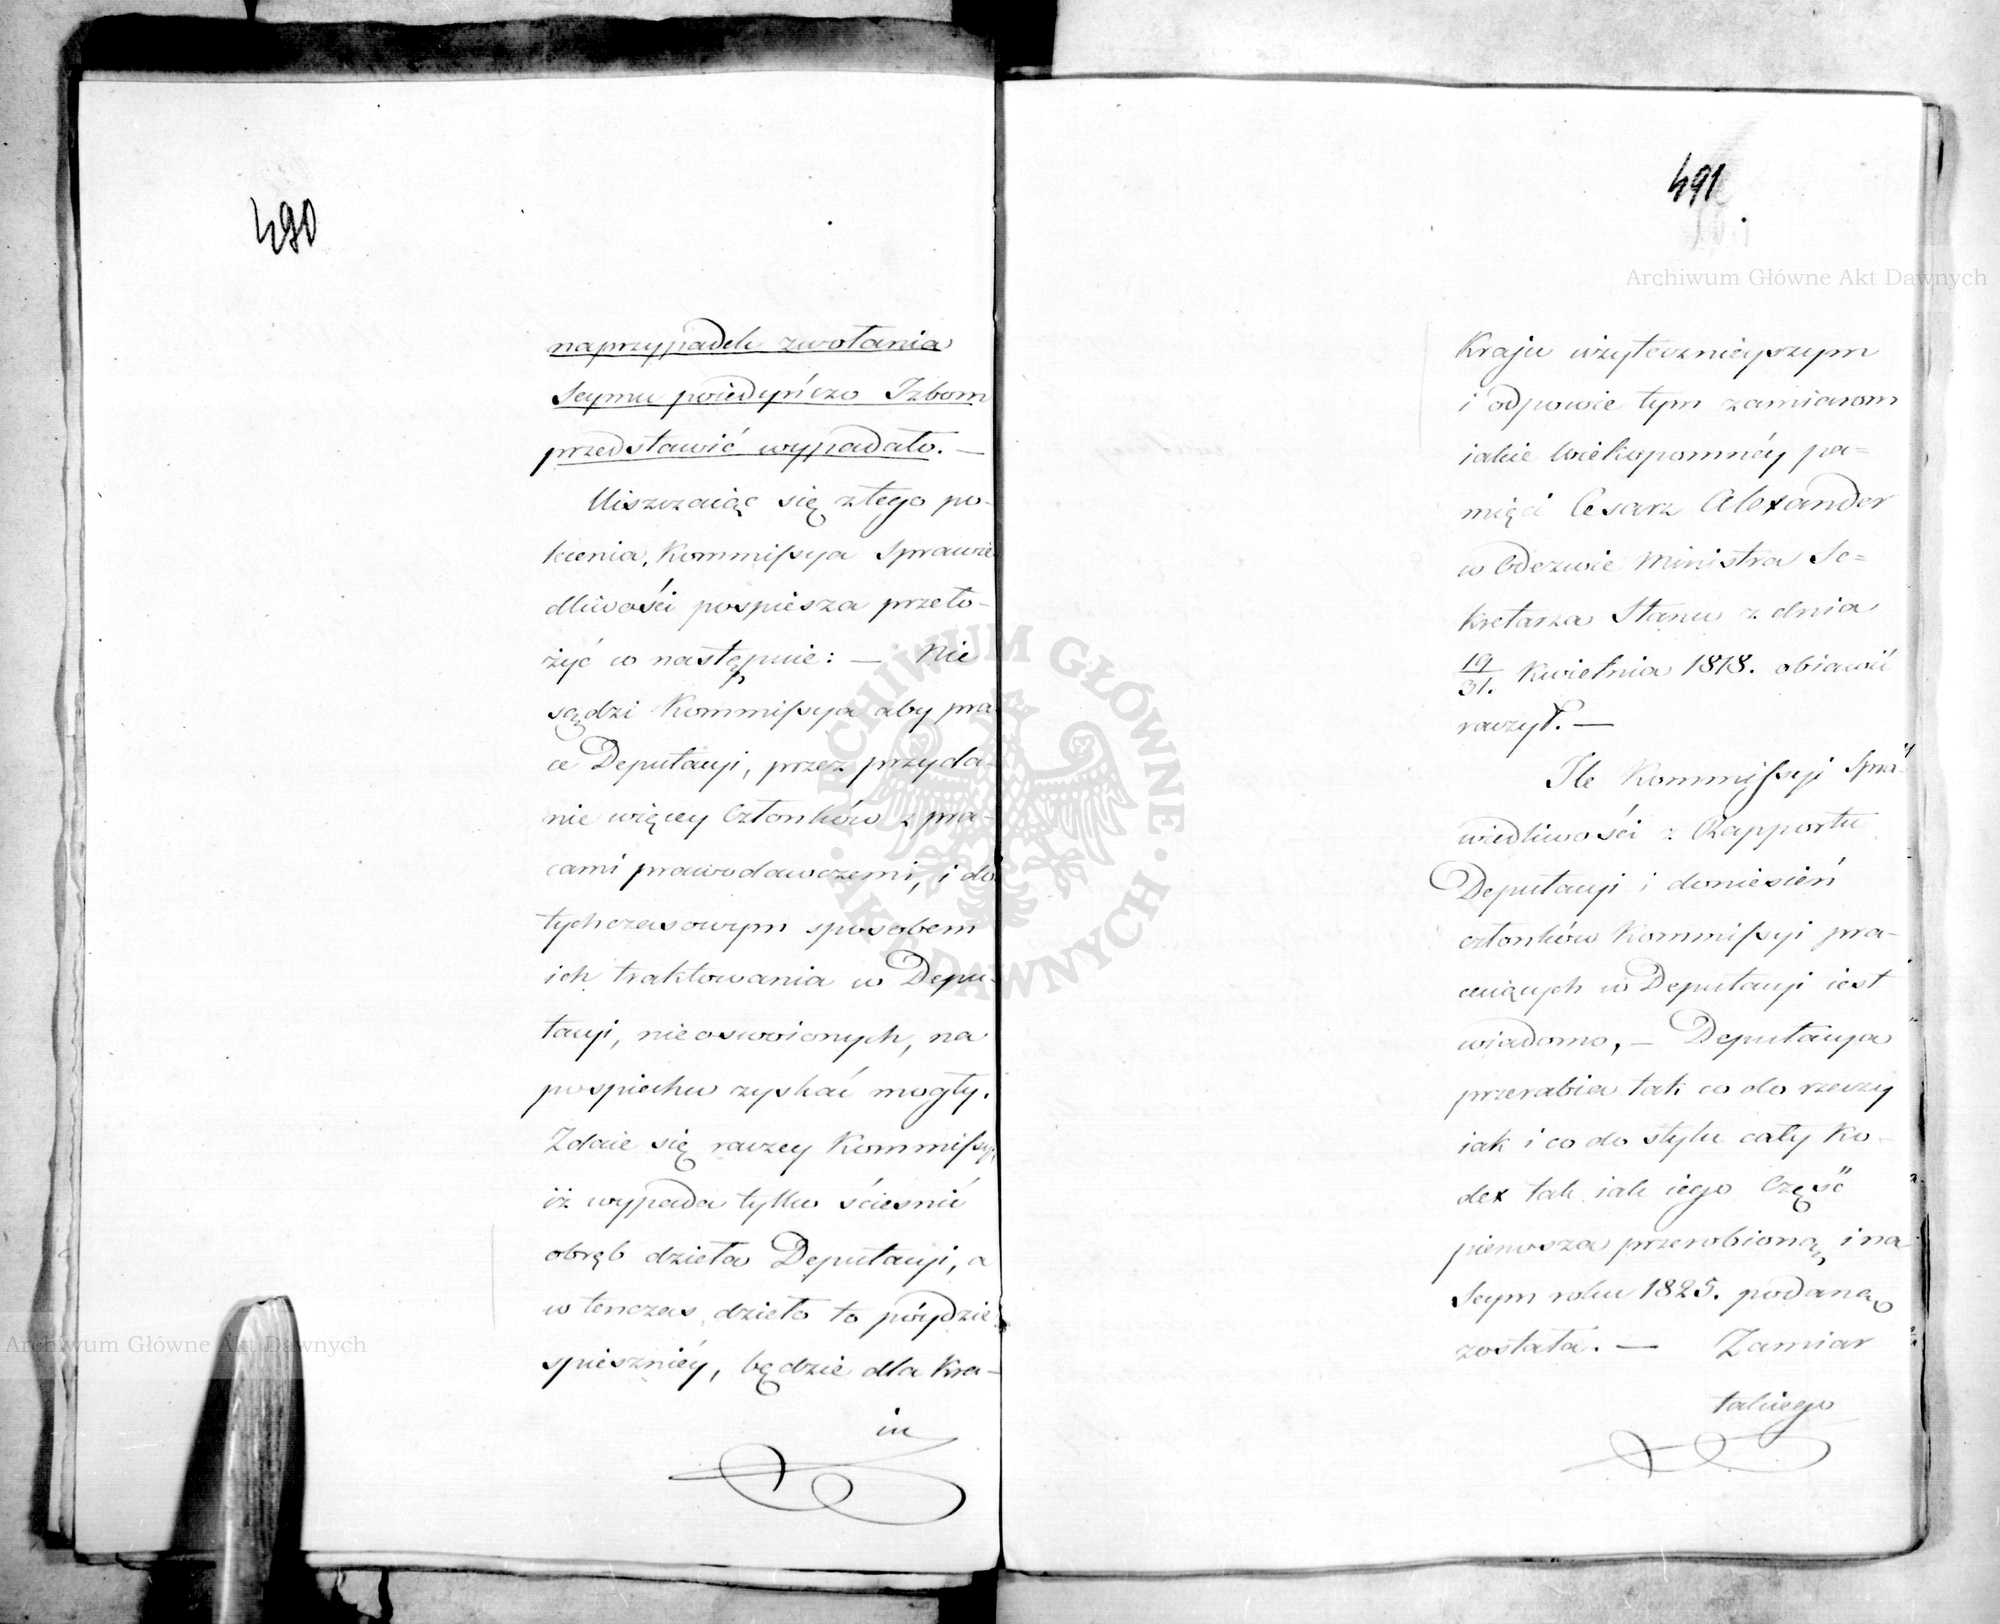 490
naprzypadek zwołania
Seymu poiedyńczo Izbom
przedstawić wypadało. —
Uiszczaiąc się z tego po-
lecenia, Kommissya Sprawie
dliwości pospiesza przeło-
żyć co następuie: — Nie
sądzi Kommissya aby pra
ce Deputacyi, przez przyda-
nie więcey Członków z pra-
cami prawodawczemi, i do
tychczasowym sposobem
ich traktowania w Depu-
tacyi, nieoswoionych, na
pospiechu zyskać mogły.
Zdaie się raczey Kommissyi,
iż wypada tylko ścieśnić
obręb dzieła Deputacyi, a
w tenczas dzieło to póydzie
spieszniéy, będzie dla Kra-
iu
491
Kraju użytecznieyszym
i odpowie tym zamiarom
iakie wiekopomnéy pa=
mięci Cesarz Alexander
w Odezwie Ministra Se=
kretarza Stanu z dnia
19/31. Kwietnia 1818. obiawić
raczył. —
Ile Kommissyi Spra-
wiedliwości z Rapportu
Deputacyi i doniesień
członków Kommissyi pra-
cuiących w Deputacyi iest
wiadomo, — Deputacya
przerabia tak co do rzeczy
iak i co do stylu cały Ko-
dex tak iak iego Część
pierwsza przerobioną, i na
Seym roku 1825. podaną
została. — Zamiar
takiego
Archiwum Główne Akt Dawnych
Archiwum Główne Akt Dawnych
ARCHIWUM GŁÓWNE · AKT DAWNYCH ·